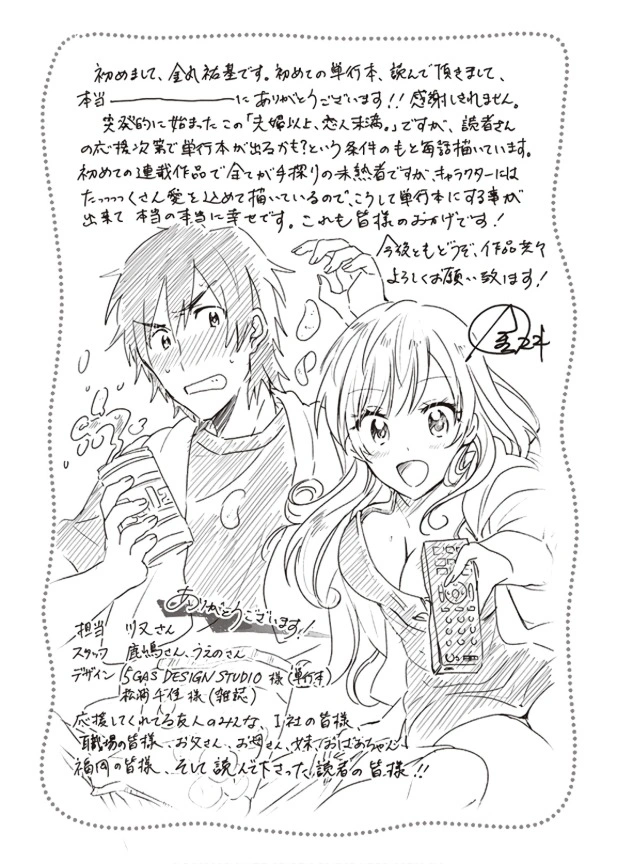 初めまして、金丸祐基です。初めての単行本、読んで頂きまして、
本当――――――にありがとうございます!!感謝しきれません。
突発的に始まったこの「夫婦以上、恋人未満。」ですが、読者さん
の応援次第で単行本が出るかも?という条件のもと毎話描いています。
初めての連載作品で全てが手探りの未熟者ですが、キャラクターには
たっっっっくさん愛を込めて描いているので、こうして単行本にする事が
出来て本当の本当に幸せです。これも皆様のおかげです!
今後ともどうぞ、作品共々
よろしくお願い致します!
ありがとうございます!
担当 川又さん
スタッフ 鹿嶋さん、うえのさん
デザイン 5GAS DESIGN STUDIO 様(単行本)
松浦千佳 様(雑誌)
応援してくれてる友人のみんな、I社の皆様、
職場の皆様、お父さん、お母さん、妹、おばあちゃん
福岡の皆様、そして読んで下さった読者の皆様!!